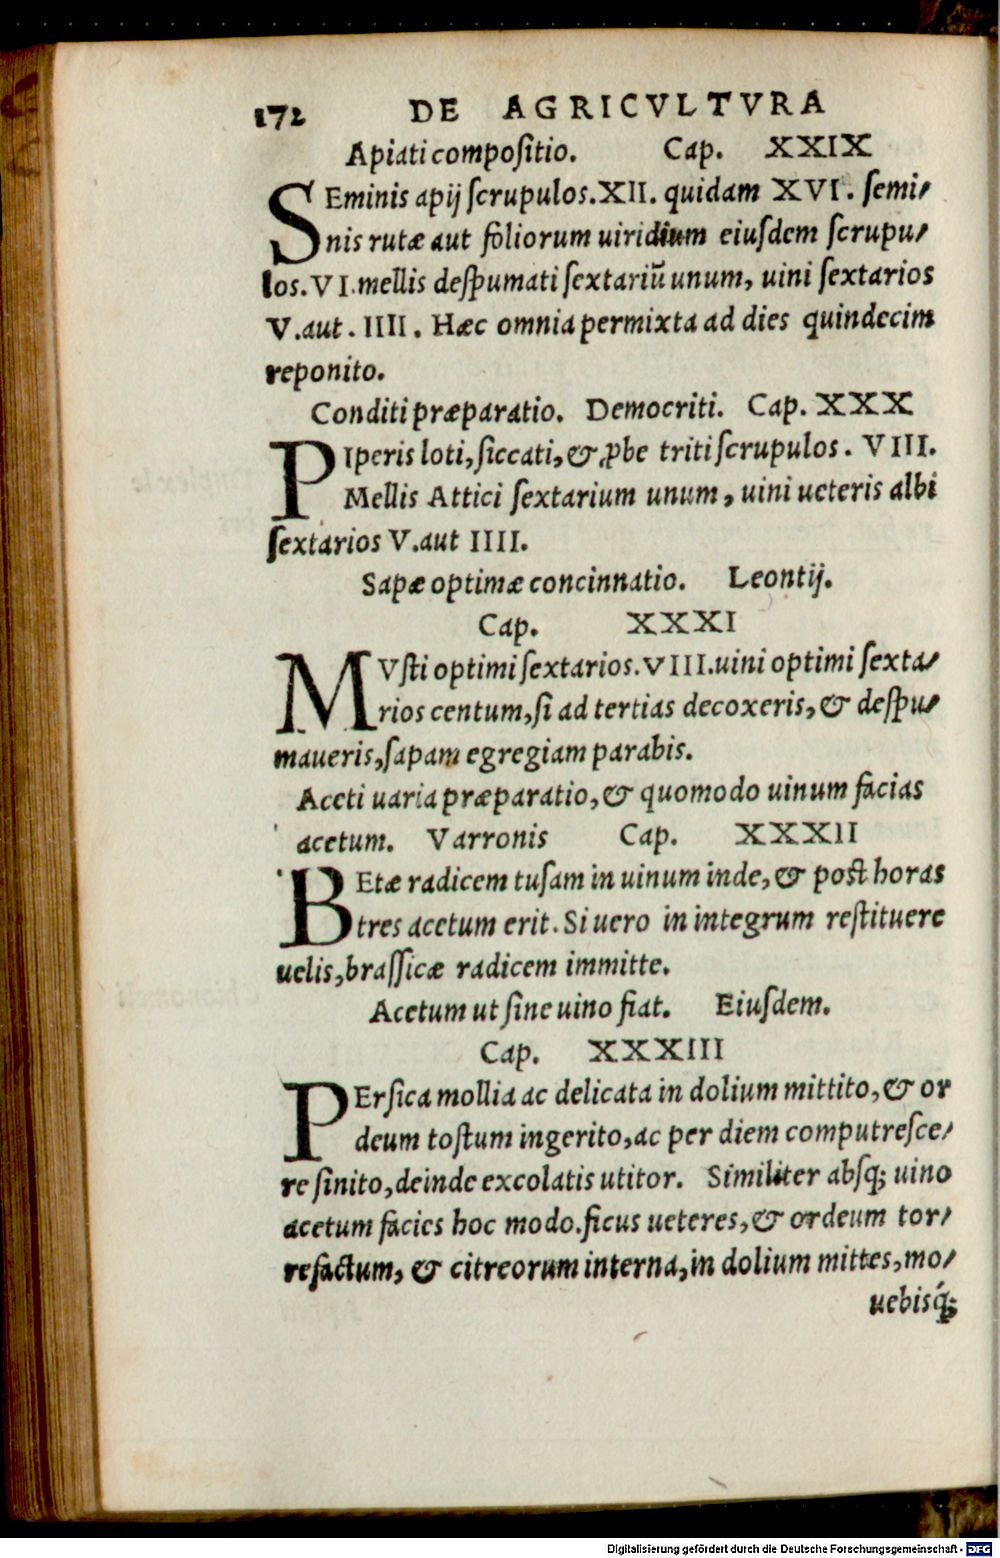 172 DE AGRICVLTVRA
Apiati compoſitio. Cap. XXIX
SEminis apij ſcrupulos.XII. quidam XVI. ſemi/
nis rutæ aut foliorum uiridium eiuſdem ſcrupu/
los.VI.mellis deſpumati ſextariũ unum, uini ſextarios
V.aut.IIII. Hæc omnia permixta ad dies quindecim
reponito.
Conditi præparatio. Democriti. Cap. XXX
PIperis loti, ſiccati, & ꝓbe triti ſcrupulos. VIII.
Mellis Attici ſextarium unum, uini ueteris albi
ſextarios V.aut IIII.
Sapæ optimæ concinnatio. Leontij.
Cap. XXXI
MVſti optimi ſextarios.VIII.uini optimi ſexta/
rios centum, ſi ad tertias decoxeris, & deſpu/
maueris, ſapam egregiam parabis.
Aceti uaria præparatio, & quomodo uinum facias
acetum. Varronis Cap. XXXII
BEtæ radicem tuſam in uinum inde, & poſt horas
tres acetum erit. Si uero in integrum reſtituere
uelis, braſſicæ radicem immitte.
Acetum ut ſine uino fiat. Eiuſdem.
Cap. XXXIII
PErſica mollia ac delicata in dolium mittito, & or
deum toſtum ingerito, ac per diem computreſce/
re ſinito, deinde excolatis utitor. Similiter abſq; uino
acetum facies hoc modo. ficus ueteres, & ordeum tor/
refactum, & citreorum interna, in dolium mittes, mo/
uebisq́;
Digitalisierung gefördert durch die Deutsche Forschungsgemeinschaft - DFG